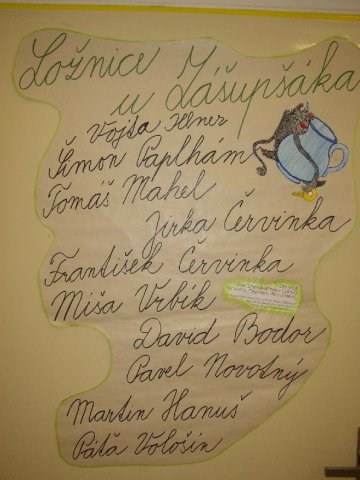 Ložnice
u Zášupšáka
Vojta Elner
Šimon Paplhám
Tomáš Mahel
Jirka Červinka
František Červinka
Míša Vrbík
David Bodor
Pavel Novotný
Martin Hanuš
Páťa Vološin